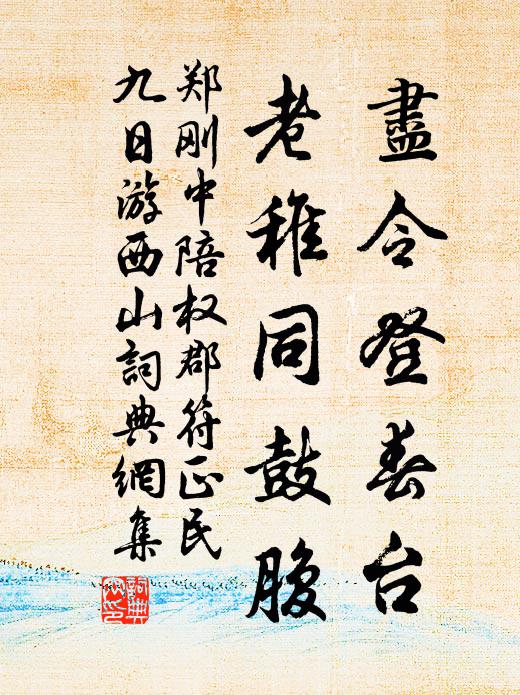 盡令登春台
老稚同鼓腹
郑刚中陪权郡符正民
九日游西山詞典網集